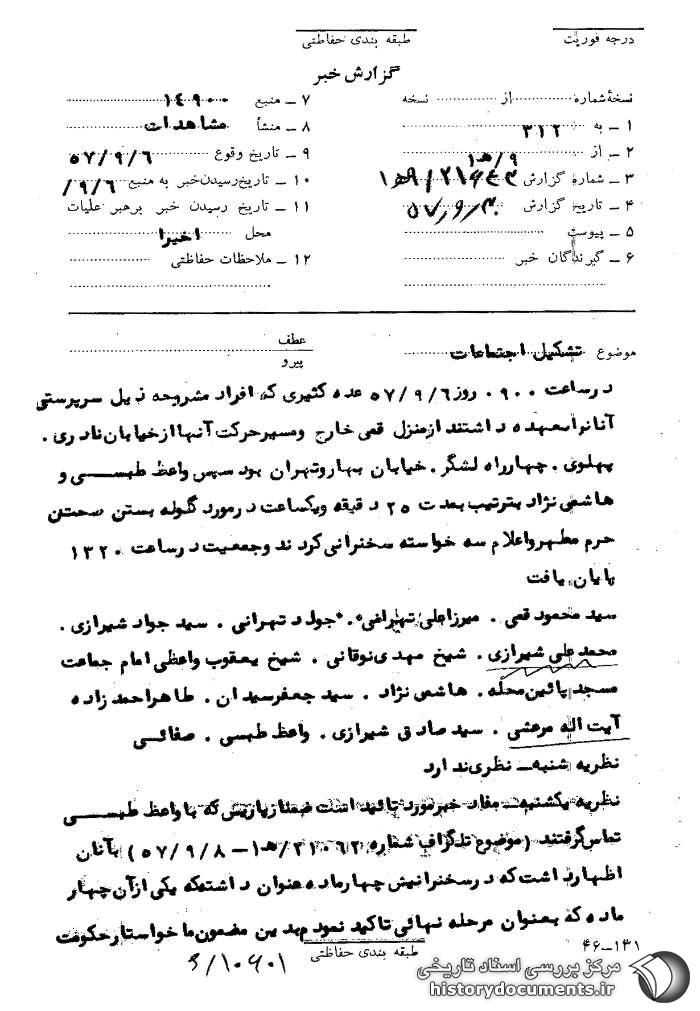 درجه فوریت
طبقه بندی حفاظتی
گزارش خبر
نسخهٔ شماره از نسخه
۱ ـ به ۳۱۲
۲ ـ از ۹/هـ۱
۳ ـ شماره گزارش
۴ ـ تاریخ گزارش
۵ ـ پیوست
۶ ـ گیرندگان خبر
۷ ـ منبع ۱۴۹۰۰
۸ ـ منشأ مشاهدات
۹ ـ تاریخ وقوع ۵۷/۹/۶
۱۰ ـ تاریخ رسیدن خبر به منبع ۹/۶/
۱۱ ـ تاریخ رسیدن خبر برهبر عملیات
محل اخیرا
۱۲ ـ ملاحظات حفاظتی
موضوع تشکیل اجتماعات
عطف
پیرو
درساعت ۰۹۰۰ روز ۵۷/۹/۶ عده کثیری که افراد مشروحه ذیل سرپرستی
آنانرابعهده داشتند ازمنزل قمی خارج ومسیرحرکت آنها ازخیابان نادری .
پهلوی . چهارراه لشگر . خیابان بهاروتهران بود سپس واعظ طبسی و
هاشمی نژاد بترتیب بمدت ۲۵ دقیقه ویکساعت درمورد گلوله بستن صحتن
حرم مطهرواعلام سه خواسته سخنرانی کردند وجمعیت درساعت ۱۳۲۰
پایان یافت
سید محمود قمی . میرزاعلی تهرانی . جواد تهرانی . سید جواد شیرازی .
محمدعلی شیرازی . شیخ مهدی نوقانی . شیخ یعقوب واعظی امام جماعت
مسجد پائین محله . هاشمی نژاد . سید جعفرسیدان . طاهراحمدزاده
آیت اله مرعشی . سید صادق شیرازی . واعظ طبسی . صفائی
نظریه شنبه ـ نظری ندارد
نظریه یکشنبه ـ مفاد خبرمورد تائید است ضمنا زیازیس که با واعظ طبسی
تماس گرفتند (موضوع تلگراف شماره ۲۱۰۶۲/هـ۱ ـ ۵۷/۹/۸) بآنان
اظهارداشت که درسخنرانیش چهارماده عنوان داشته که یکی ازآن چهار
ماده که بعنوان مرحله نهائی تاکید نمودم بدین مضمون ما خواستارحکومت
طبقه بندی حفاظتی
۴۶-۱۳۱
مرکز بررسی اسناد تاریخی
historydocuments.ir